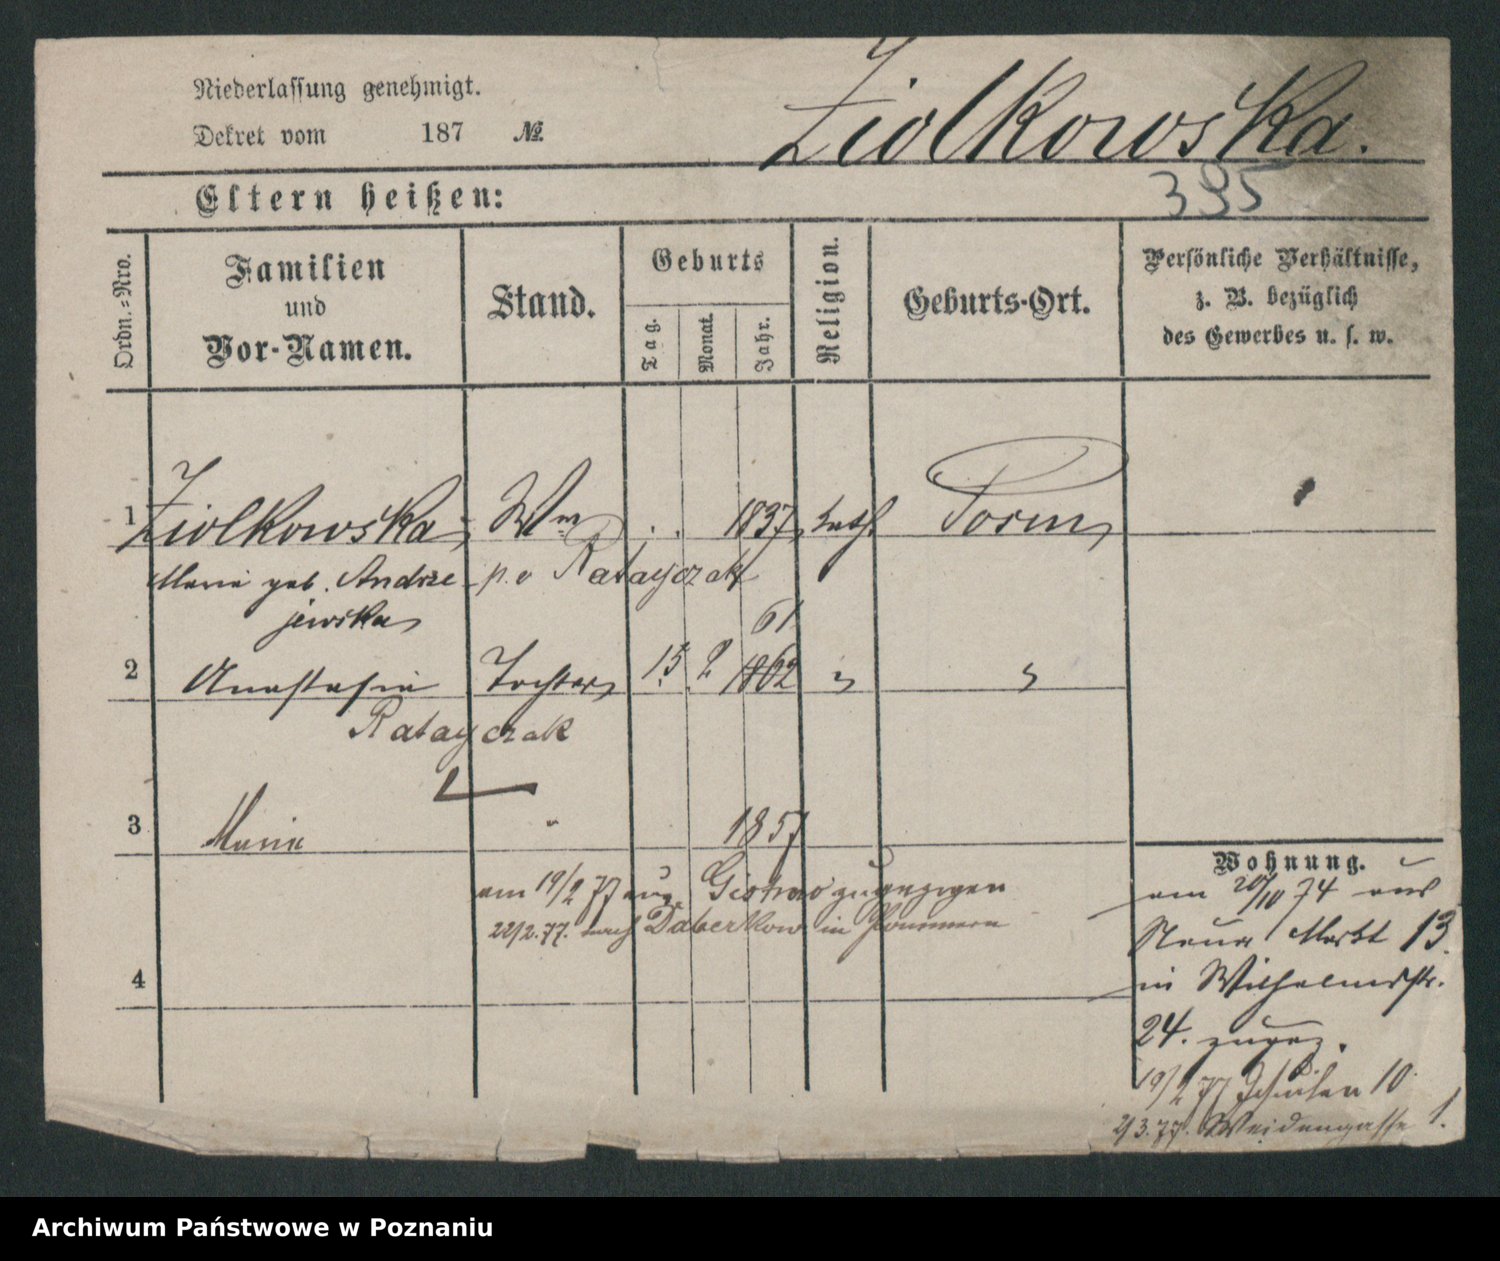 Niederlassung genehmigt.
Dekret vom 187 №.
Ziolkowska.
395
Eltern heißen:
Ordn.-Nro.
Familien
und
Vor-Namen.
Stand.
Geburts
Tag.
Monat.
Jahr.
Religion.
Geburts-Ort.
Persönliche Verhältnisse,
z. B. bezüglich
des Gewerbes u. s. w.
1 Ziolkowska Ww . . 1837 kath Posen
Marie geb. Andrze p. v Ratayczak
jewska
61
2 Anastasia Tochter 15 2 1862 " "
Ratayczak
3 Maria " 1857
am 19/2 77 aus zugezogen
22/2.77. nach Daberkow in Pommern
4
Wohnung.
am 20/10 74 aus
Neuer Markt 13
in Wilhelmstr.
24. zugez.
19/2 77 10.
2/3.77. Weidengasse 1.
Archiwum Państwowe w Poznaniu